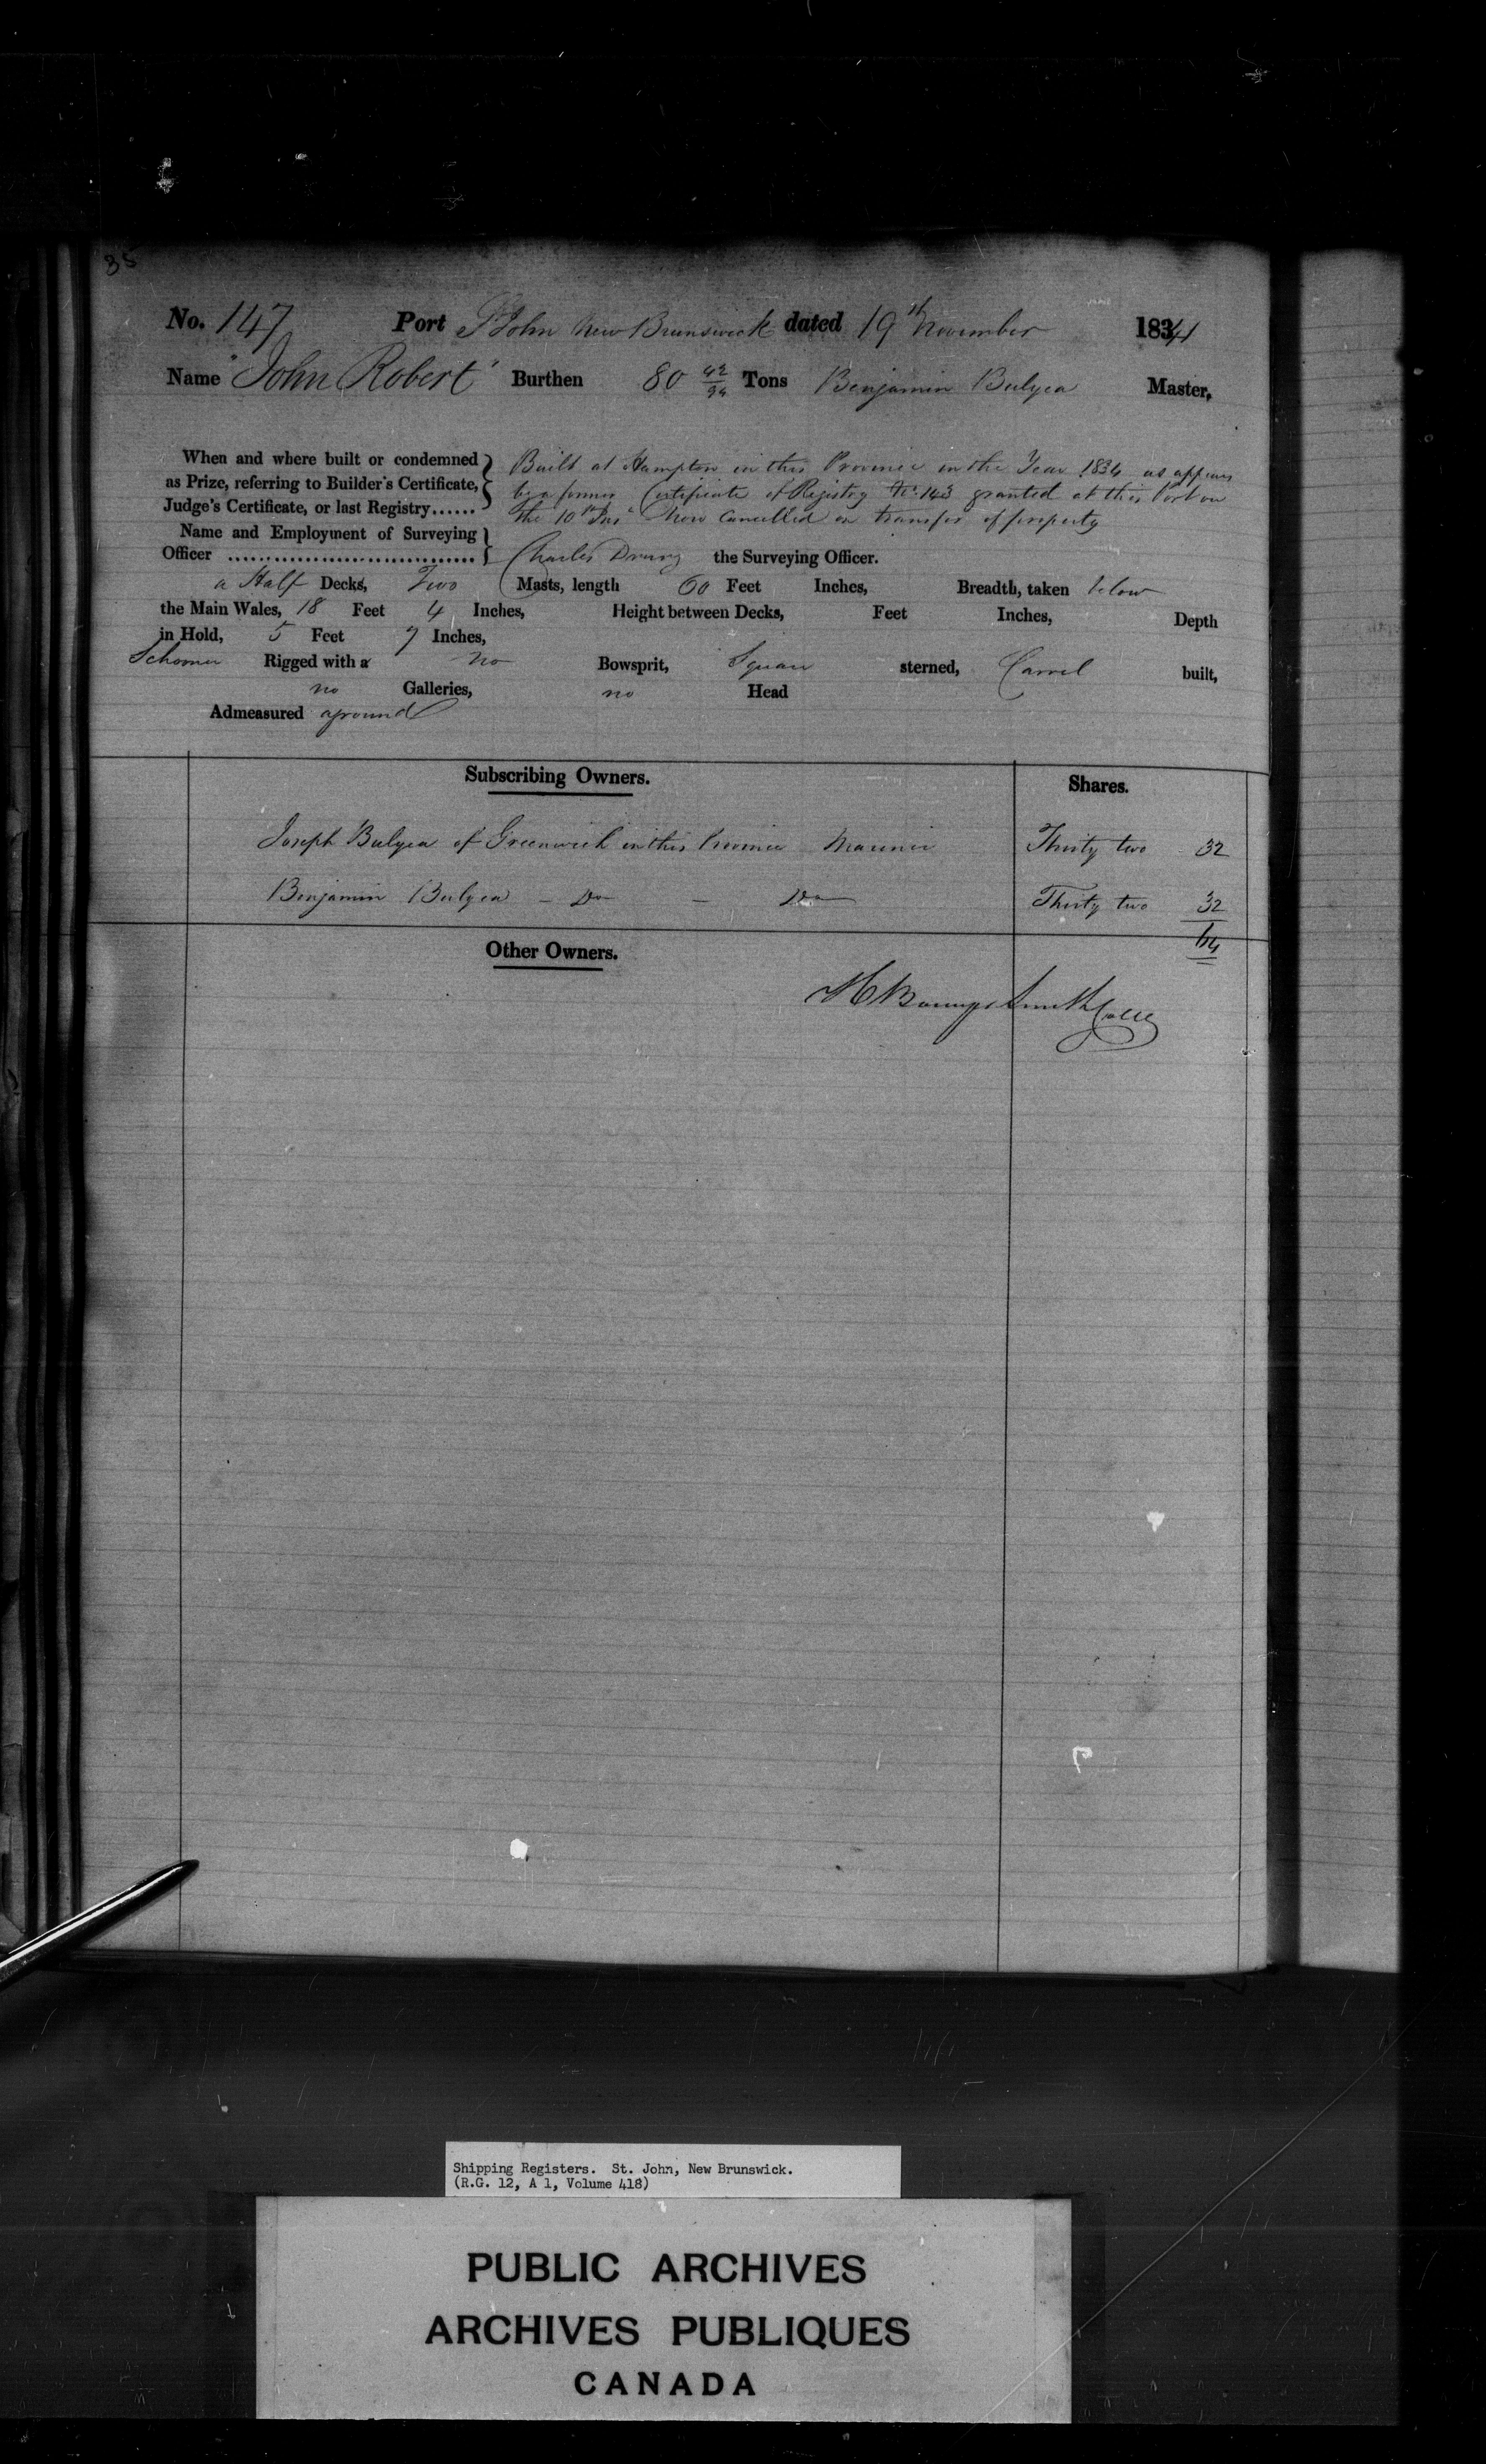 35
No. 147 Port St John New Brunswick dated 19th November 1834
Name "John Robert" Burthen 80 42/94 Tons Benjamin Bulyea Master,
When and where built or condemned as Prize, referring to Builder's Certificate, Judge's Certificate, or last Registry......
Built at Hampton in this Province in the Year 1834 as appears
by a former Certificate of Registry No. 143 granted at this Port on
the 10th Inst Now Cancelled on transfer of property
Name and Employment of Surveying
Officer ................................ Charles Drury the Surveying Officer.
a Half Decks, Two Masts, length 60 Feet Inches, Breadth, taken below
the Main Wales, 18 Feet 4 Inches, Height between Decks, Feet Inches, Depth
in Hold, 5 Feet 7 Inches,
Schooner Rigged with a no Bowsprit, Square sterned, Carvel built,
no Galleries, no Head
Admeasured aground
Subscribing Owners. Shares.
Joseph Bulyea of Greenwich in this Province Mariner Thirty two 32
Benjamin Bulyea - Do - Do Thirty two 32
64
Other Owners.
Smith
Shipping Registers. St. John, New Brunswick.
(R.G. 12, A 1, Volume 418)
PUBLIC ARCHIVES
ARCHIVES PUBLIQUES
CANADA